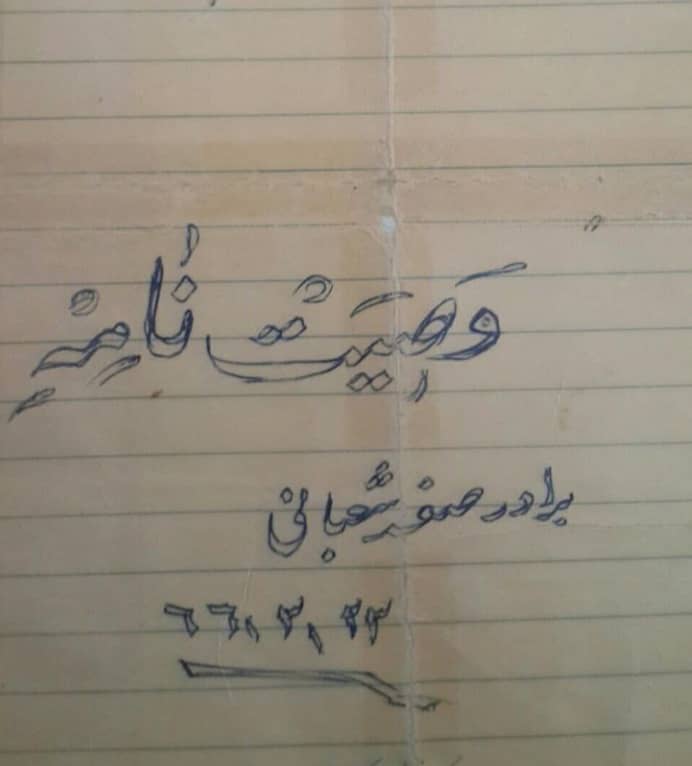 وَصِیَتْ نامِهْ
برادر صفر شعبانی
۶۶,۳,۲۳